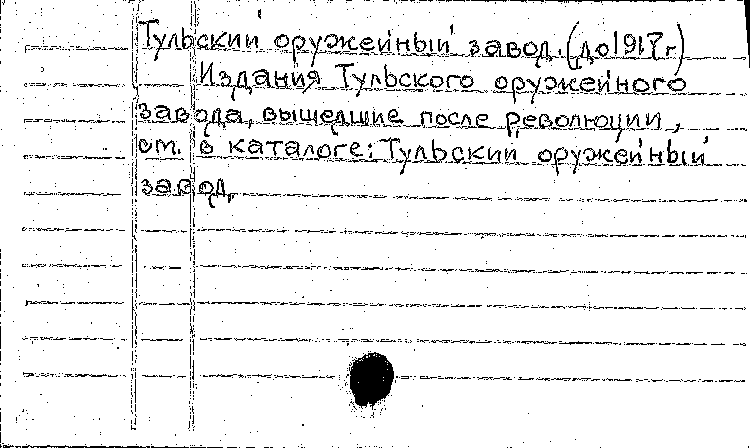 Тульский оружейный завод. (до 1917 г)
Издания Тульского оружейного
завода, вышедшие после революции,
см. в каталоге: Тульский оружейный
завод.